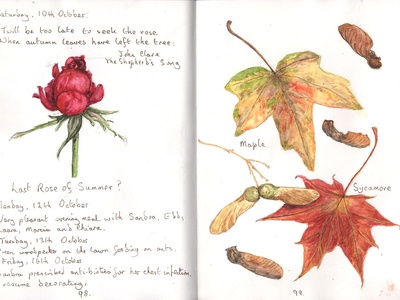 Saturday, 10th October.
'Twill be too late to seek the rose
When autumn leaves have left the tree:
John Clare
The Shepherd's Song
Last Rose of Summer?
Monday, 12th October
Very pleasant evening meal with Sandra, Gibbi,
Laura, Marcia and Chiara.
Tuesday, 13th October
Green woodpecker on the lawn feeding on ants.
Friday, 16th October
Sandra prescribed antibiotics for her chest infection,
resume decorating.
98.
Maple
Sycamore
99.